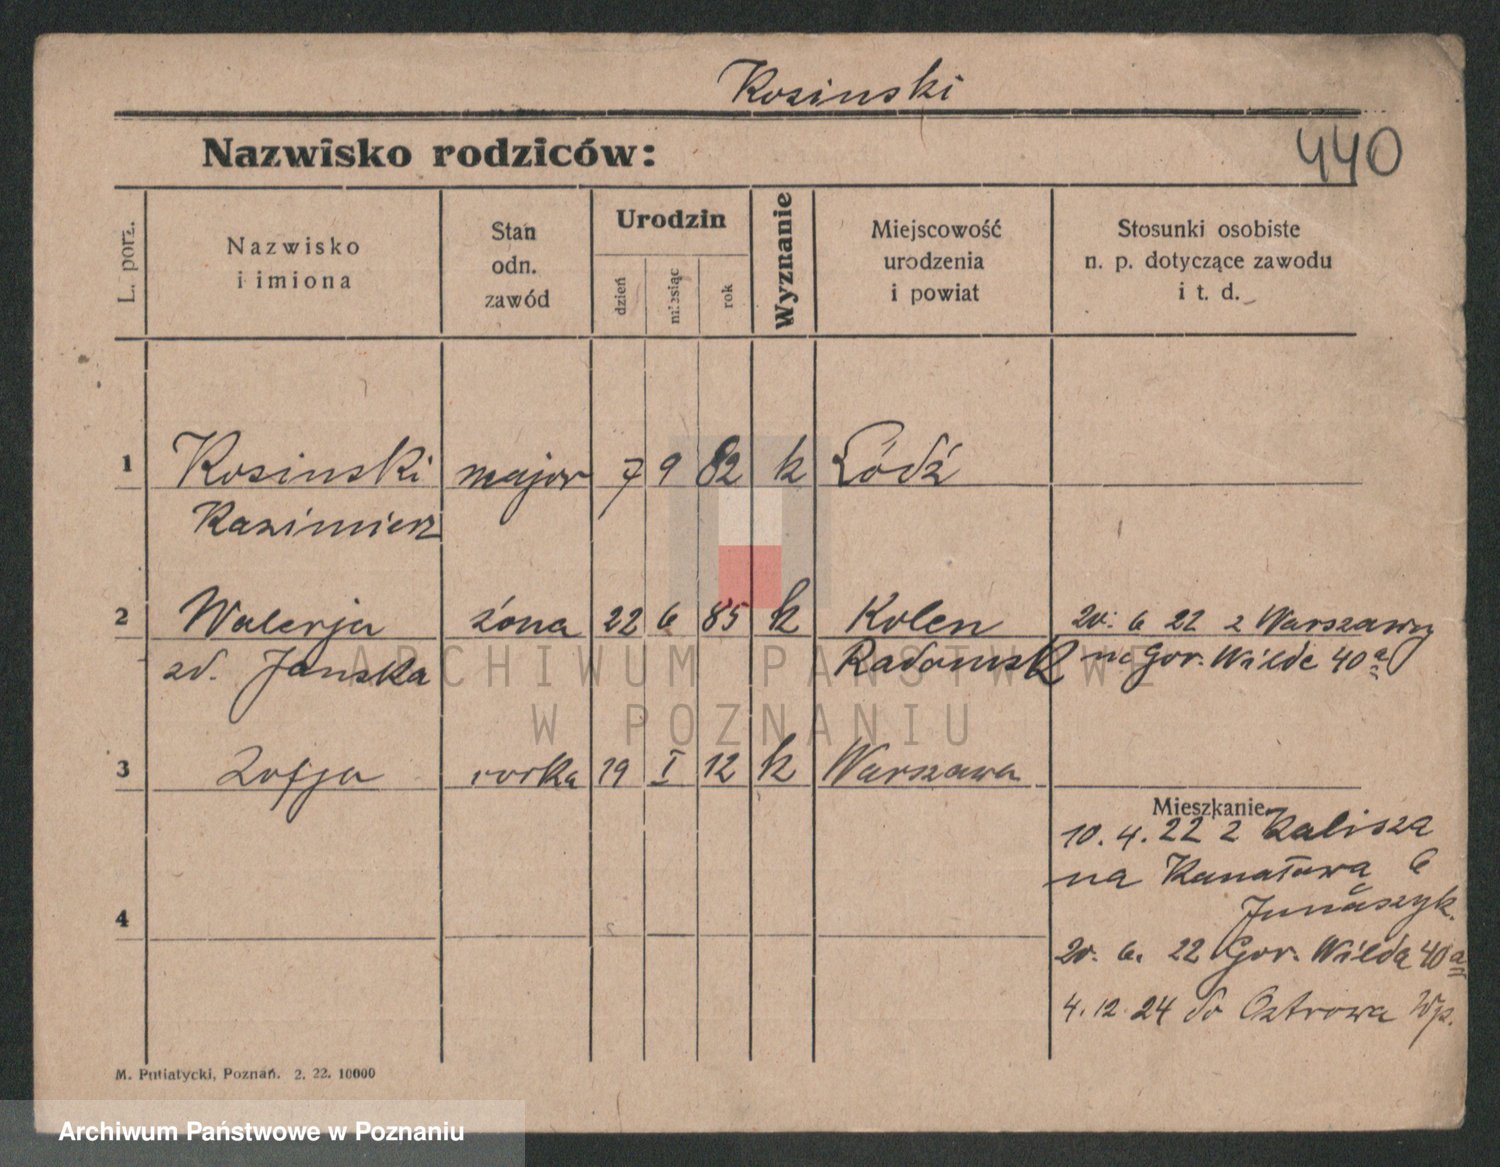 Kosinski
Nazwisko rodziców:
440
L. porz.
Nazwisko
i imiona
Stan
odn.
zawód
Urodzin
dzień
miesiąc
rok
Wyznanie
Miejscowość
urodzenia
i powiat
Stosunki osobiste
n. p. dotyczące zawodu
i t. d.
1 Kosinski major 7 9 82 k Łódź
Kazimierz
2 Walerja żona 22 6 85 k Kolen 20. 6 22 z Warszawy
zd. Janska Radomsk na Gór. Wilde 40a
3 Zofja corka 19 I 12 k Warszawa
Mieszkanie
10. 4. 22 z Kalisza
na Kanałowa 6
20. 6. 22 Gor. Wilda 40a
4
4. 12. 24 do Ostrowa Wp.
M. Putiatycki, Poznań. 2. 22. 10000
ARCHIWUM PAŃSTWOWE
W POZNANIU
Archiwum Państwowe w Poznaniu